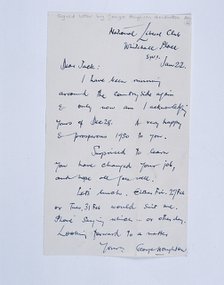 Signed letter by George Houghton
National Liberal Club
Whitehall Place
SW1
Jan 22
Dear Jack:
I have been running
around the countryside again
& only now am I acknowledging
yours of Dec 28. A very happy
& prosperous 1950 to you.
Surprised to learn
you have changed your job,
and hope all goes well.
Let's lunch. Either Fri. 27 Feb
or Tues 31 Feb would suit me.
Phone saying which – or other day.
Looking forward to a natter,
Yours,
George Houghton